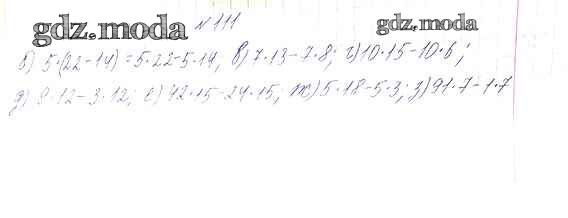 gdz.moda №111 gdz.moda
б) 5·(22-14)=5·22-5·14, в) 7·13-7·8; г) 10·15-10·6;
д) 9·12-3·12; е) 42·15-24·15; ж) 5·18-5·3; з) 91·7-1·7